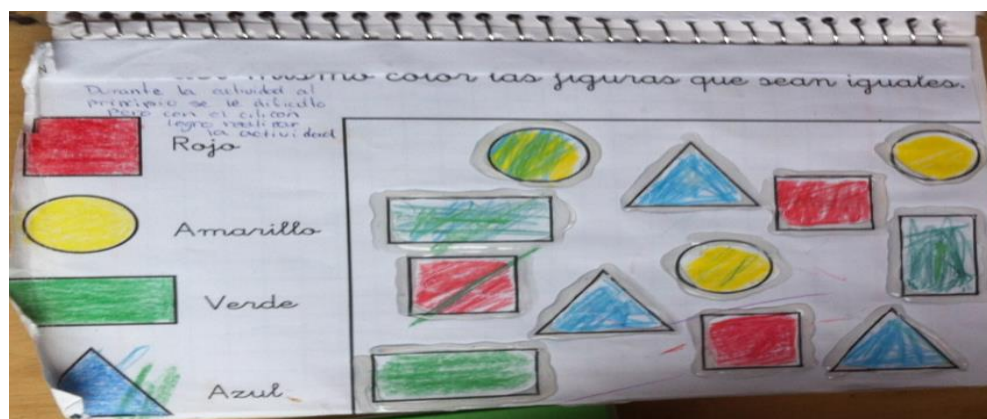 mismo color las figuras que sean iguales.
Durante la actividad al
principio se le dificulto
pero con el silicon
logro realizar
la actividad
Rojo
Amarillo
Verde
Azul